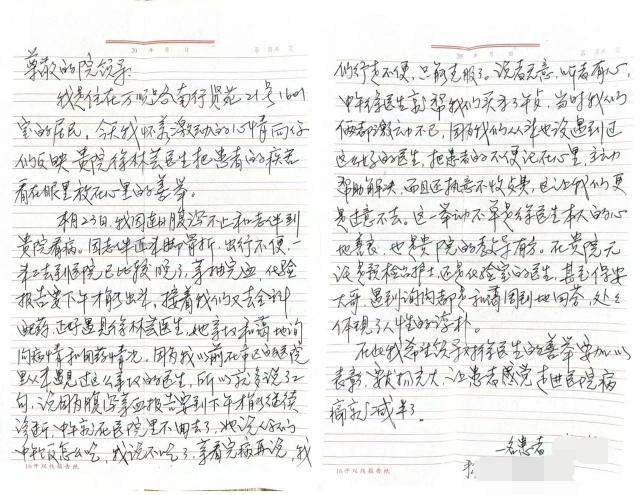 20 年 月 日
尊敬的院领导:
我是住在万顺路南行贤苑21号1601
室的居民,今天我怀着激动的心情向你
们反映贵院徐林芸医生把患者的疾苦
看在眼里放在心里的善举。
本月23日,我因连日腹泻不止和老伴到
贵院看病。因老伴近来脚骨折,出行不便,一
来二去到医院已比较晚了,等抽完血,化验
报告要下午才能出来,接着我们又去全科
配药,正好遇见徐林芸医生,她亲切和蔼地询
问病情和用药情况。因为我以前在市区的医院
里从未遇见过这么亲切的医生,所以就多说了2
句,说因为腹泻等血报告要到下午才能继续
诊断,中午就在医院里不回去了。她说人家的
中午饭怎么吃,我说不吃了,等看完病再说,我
16开双线报告纸
20 年 月 日
们行走不便,只能克服了。说者无意,听者有心,
中午徐医生就帮我们买来了午点,当时我们
俩都激动不已,因为我们从来也没遇到过
这么好的医生,把患者的不便记在心里,主动
帮助解决,而且还执意不收点费,这让我们更
是过意不去。这一举动不单是徐医生本人的心
地善良,也是贵院的教导有方。在贵院无
论是预检台护士,还是化验室的医生,甚至保安
大哥,遇到询问都是和蔼周到地回答,处处
体现了人性的淳朴。
在此我希望领导对徐医生的善举要加以
表彰,要发扬光大,让患者感觉走进医院病
痛就减半了。
一名患者
16开双线报告纸